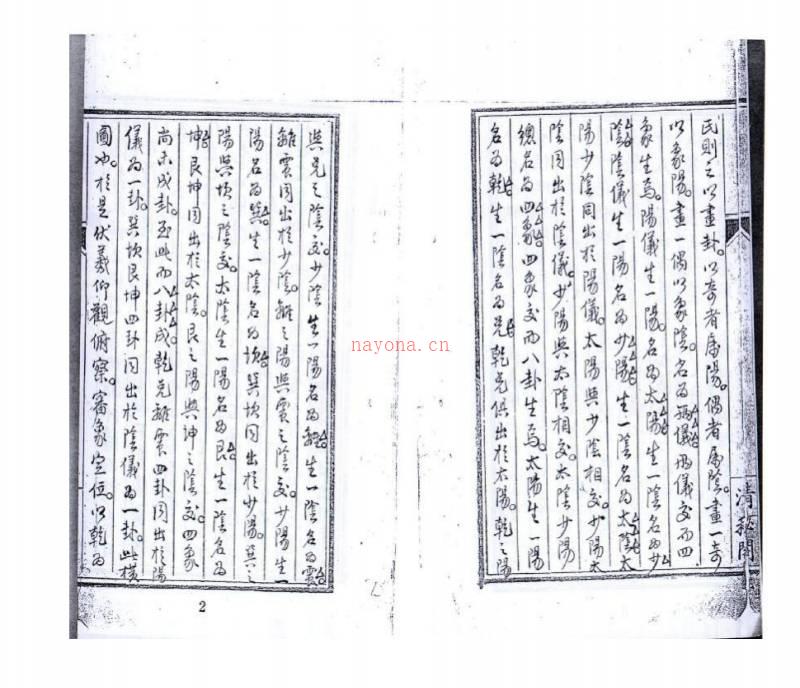 民則之以畫卦。以奇者為陽。偶者為陰。畫一奇
以象陽。畫一偶以象陰。名為兩儀。兩儀交而四
象生焉。陽儀生一陽。名為太陽。生一陰名為少
陰。陰儀生一陽名為少陽。生一陰名為太陰。太
陽少陰同出於陽儀。太陽與少陰相交。少陽太
陰同出於陰儀。少陽與太陰相交。太陰少陽
總名為四象。四象交而八卦生焉。太陽生一陽
名為乾。生一陰名為兌。乾兌俱出於太陽。乾之陽
與兌之陰交。少陰生一陽名為離。生一陰名為震
離震同出於少陰。離之陽與震之陰交。少陽生一
陽名為巽。生一陰名為坎。巽坎同出於少陽。巽之
陽與坎之陰交。太陰生一陽名為艮。生一陰名為
坤。艮坤同出於太陰。艮之陽與坤之陰交。四象
尚未成卦。至此而八卦成。乾兌離震四卦同出於陽
儀為一卦。巽坎艮坤四卦同出於陰儀為一卦。此橫
圖也。於是伏羲仰觀俯察。審象定位。以乾為
清
閣
nayona.cn
2